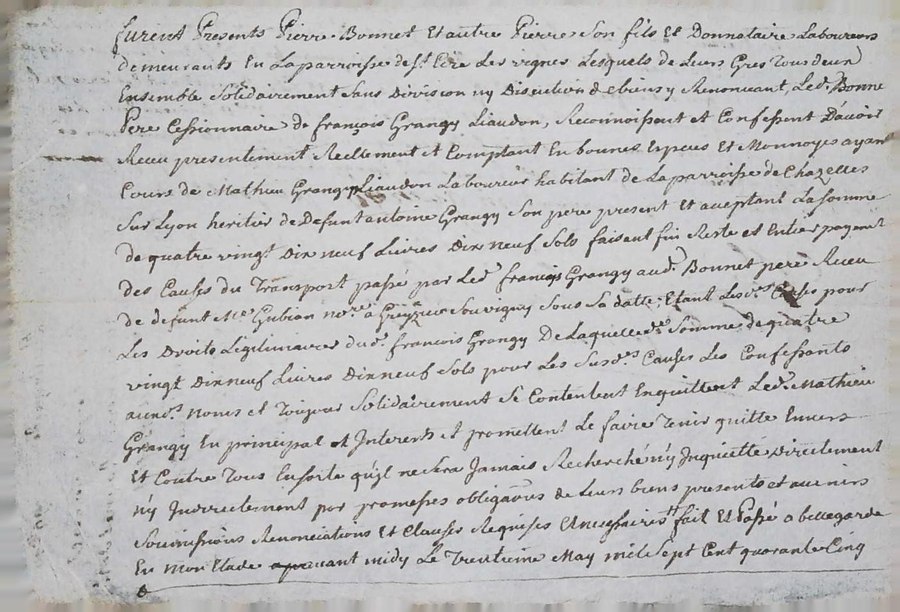 furent Presents Pierre Bonnet Et autre Pierre Son fils Et Donnataire Laboureurs
demeurants En La parroisse de St. Les vignes Lesquels de Leurs Gres Tous deux
Ensemble Solidairement Sans Division ny Discution de biens y Renoncant, Led. Bonne
Pere Cessionnaire de françois Grangy Liaudon, Reconnoissent et Confessent D'avoir
Receu presentement Reellement et Comptant En bonnes Especes Et Monnoyes ayant
Cours de Mathieu Grangy Liaudon Laboureur habitant de La parroisse de Chazelles
Sur Lyon heritier de Defunt antoine Grangy Son pere present Et acceptant La Somme
de quatre vingt Dix neuf Livres Dix neuf Sols faisant fin Reste et Entier payement
des Causes du Transport passé par Led. françois Grangy aud. Bonnet pere Receu
de defunt Me. Gubian nore. a Souvigny Sous Sa datte. Etant Les Causes pour
Les Droits Legitimaires dud. françois Grangy De Laquelle de. Somme de quatre
vingt Dix neuf Livres Dix neuf Sols pour Les Susd. Causes Les Confessants
auxd. Noms et Toujour Solidairement Se Contentent Enquittent Led. Mathieu
Grangy En principal et Interets et promettent Le faire Tenir quitte Envers
Et Contre Tous Ensorte qu'jl ne Sera Jamais Recherché ny Inquietté Directement
ny Indirectement par promesses obligaons de Leurs biens presents et avenirs
Soumissions Renonciations Et Clauses Requises Et necessaires fait Et Passé a bellegarde
En Mon Etude avant midy Le Trentieme May mil Sept Cent quarante Cinq